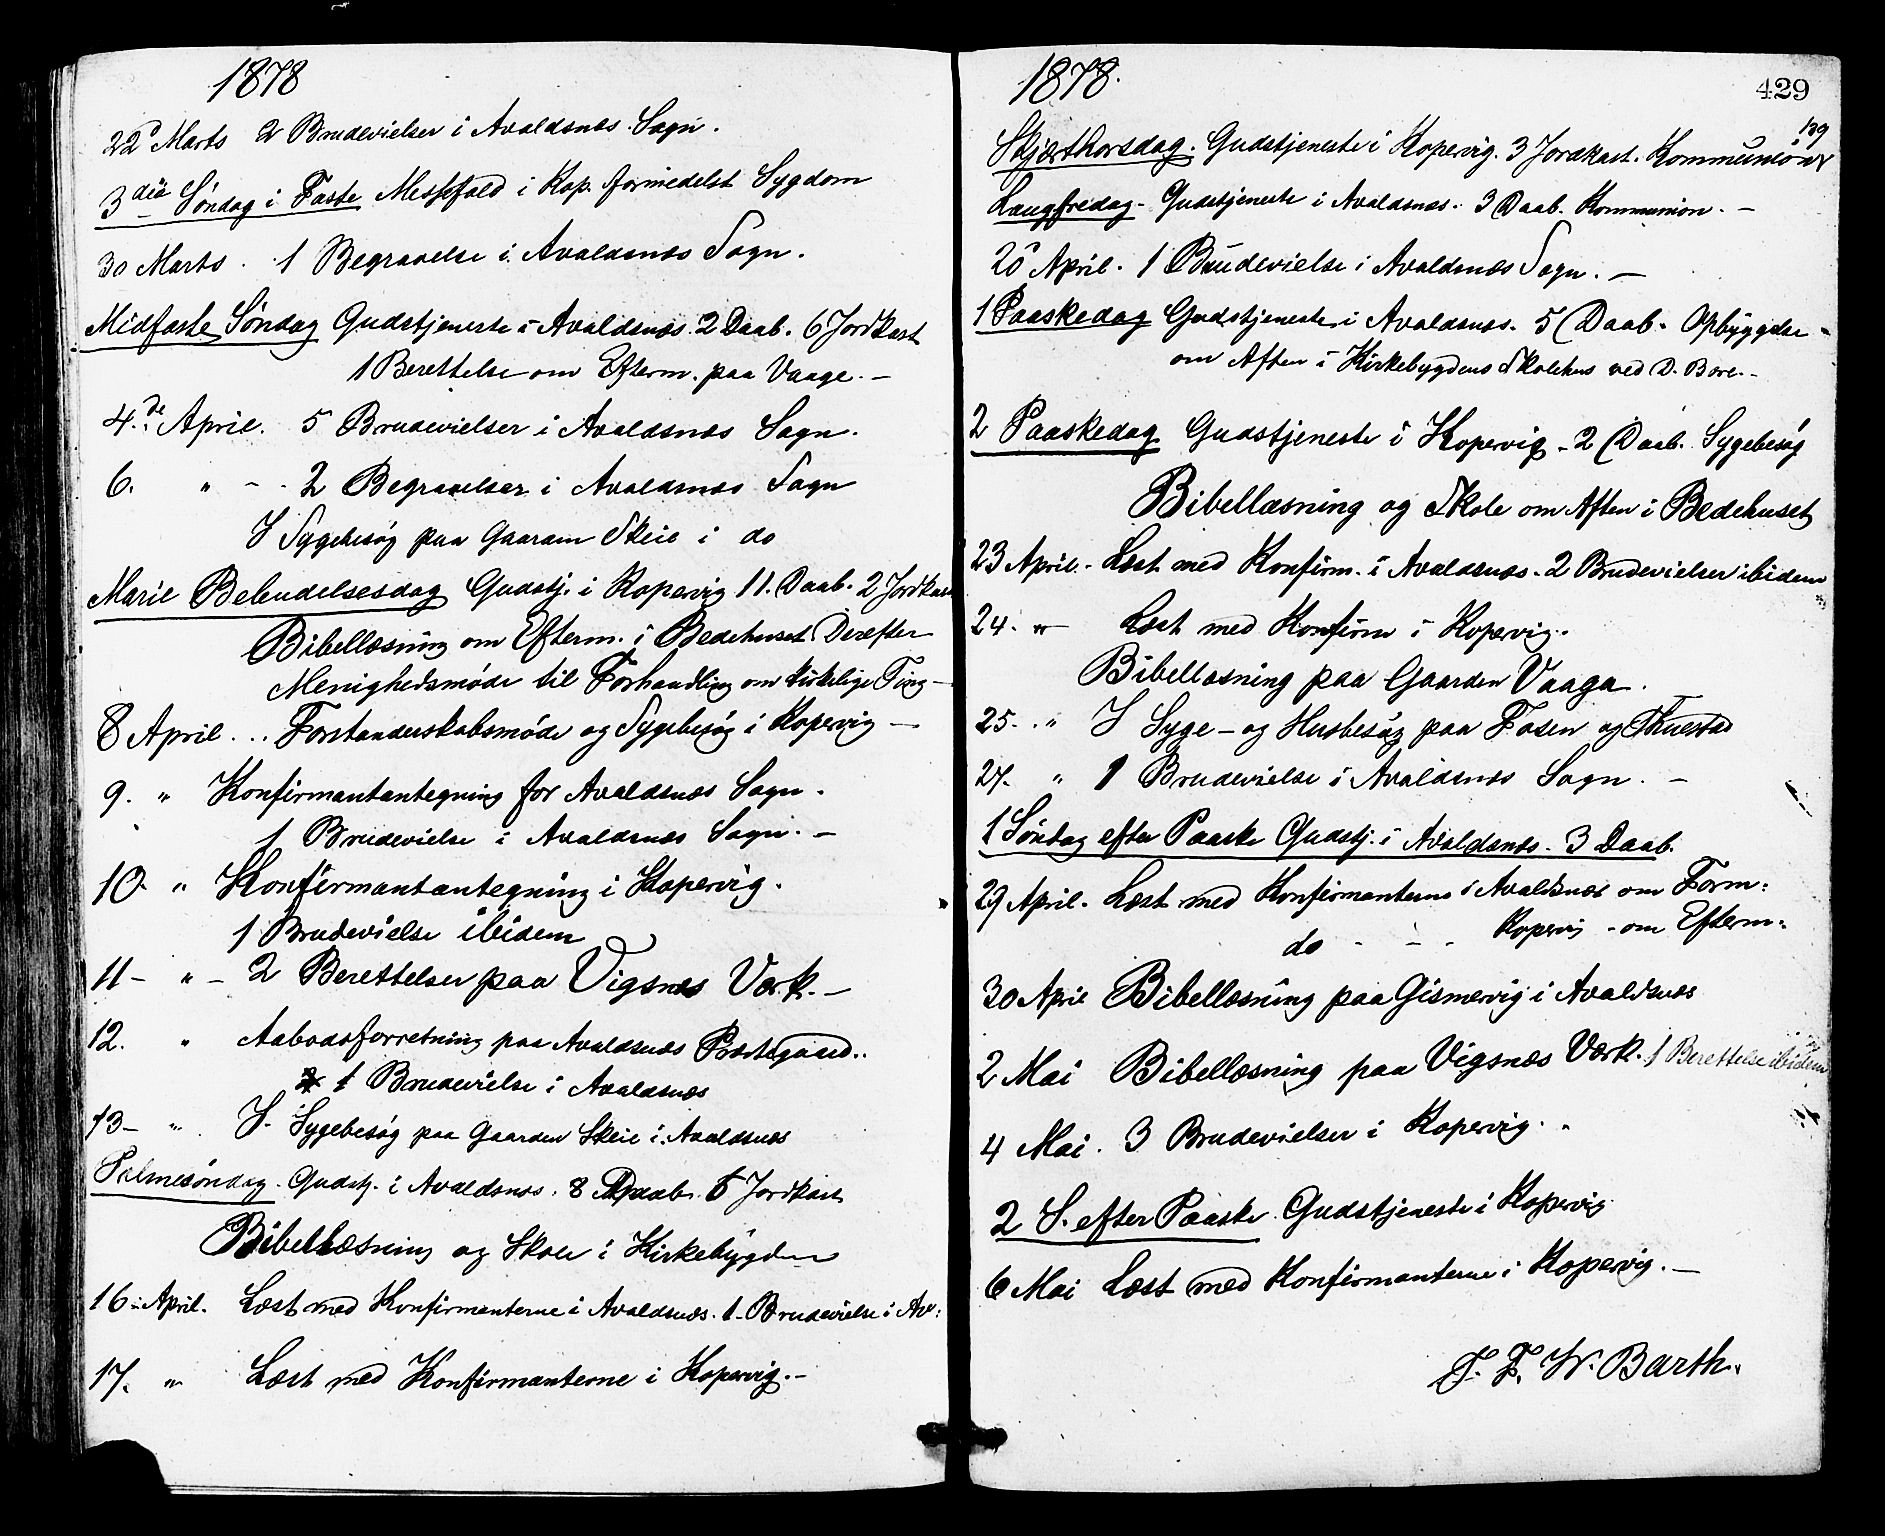 1878
22d Marts 2 Brudevielser i Avaldsnæs Sogn.
3die Søndag i Faste Messefald i Kop. formedelst Sygdom
30 Marts. 1 Begravelse i Avaldsnæs Sogn.
Midfaste Søndag Gudstjeneste i Avaldsnæs. 2 Daab. 6 Jordkast
1 Berettelse om Efterm. paa Vaage. –
4.de April. 5 Brudevielser i Avaldsnæs Sogn.
6. " - - 2 Begravelser i Avaldsnæs Sogn
I Sygebesøg paa Gaarden Skeie i do
Marie Bebudelsesdag Gudstj. i Kopervig 11. Daab. 2 Jordkast
Bibellæsning om Efterm. i Bedehuset Derefter
Menighedsmøde til Forhandling om kirkelige Ting –
8 April ... Forstanderskabsmøde og Sygebesøg i Kopervig –
9. " Konfirmantantegning for Avaldsnæs Sogn.
1 Brudevielse i Avaldsnæs Sogn. –
10. " Konfirmantantegning i Kopervig.
1 Brudevielse ibidem
11 – " – 2 Berettelser paa Vigsnæs Værk. –
12. " Aabodsforretning paa Avaldsnæs Præstegaard..
1 Brudevielse i Avaldsnæs
13 – " . I. Sygebesøg paa Gaarden Skeie i Avaldsnæs
Palmesøndag. Gudstj. i Avaldsnæs. 8 Daab. 6 Jordkast
Bibellæsning og Skole i Kirkebygden
16 April. Læst med Konfirmanterne i Avaldsnæs. 1 Brudevielse i Av:
17. " Læst med Konfirmanterne i Kopervig. –
1878.
429
Skjærthorsdag. Gudstjeneste i Kopervig. 3 Jordkast. Kommunion
Langfredag – Gudstjeneste i Avaldsnæs. 3 Daab. Kommunion. –
20 April. 1 Brudevielse i Avaldsnæs Sogn. –
1 Paaskedag Gudstjeneste i Avaldsnæs. 5 Daab. Opbyggelse
om Aften i Kirkebygdens Skolehus ved D. Bore. –
2 Paaskedag Gudstjeneste i Kopervig – 2 Daab. Sygebesøg
Bibellæsning og Skole om Aften i Bedehuset
23 April – Læst med Konfirm. i Avaldsnæs – 2 Brudevielser ibidem
24. " – Læst med Konfirm i Kopervig.
Bibellæsning paa Gaarden Vaaga.
25 – . " I Syge – og Husbesøg paa Fosen og Thuestad
27. " 1 Brudevielse i Avaldsnæs Sogn. –
1 Søndag efter Paaske Gudstj. i Avaldsnæs. 3 Daab.
29 April. Læst med Konfirmanterne i Avaldsnæs om Form:
do – – – Kopervig – om Efterm:
30 April Bibellæsning paa Gismervig i Avaldsnæs
2 Mai Bibellæsning paa Vigsnæs Værk. 1 Berettelse ibidem
4 Mai. 3 Brudevielser i Kopervig.
2 S. efter Paaske. Gudstjeneste i Kopervig
6 Mai Læst med Konfirmanterne i Kopervig. –
F. W. Barth.